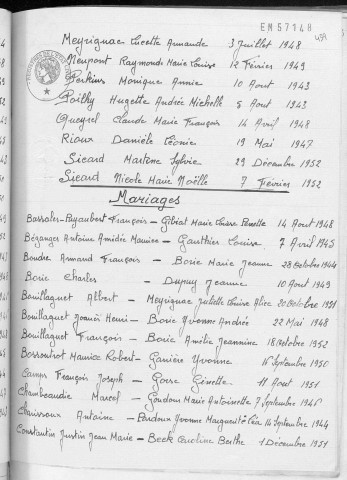 EN57148
Meyrignac Lucette Armande 3 Juillet 1948
Neupont Raymonde Marie Louise 12 Février 1949
Perkins Monique Annie 10 Aout 1943
Poilhy Hugette Andrée Michelle 5 Aout 1943
Queyrel Claude Marie François 14 Avril 1948
Rioux Danièle Léonie 19 Mai 1947
Sicard Martine Sylvie 29 Décembre 1952
Sicard Nicole Marie Noëlle 7 Février 1952
Mariages
Bassaler-Payaubert François - Gibiat Marie Louise Pierrette 14 Aout 1948
Béganges Antoine Amédée Maurice - Gauthier Louise 7 Avril 1945
Boudre Armand François - Borie Marie Jeanne 28 Octobre 1944
Borie Charles - Dupuy Jeanne 10 Aout 1949
Bouillaguet Albert - Meyrignac Juliette Louise Alice 20 Octobre 1951
Bouillaguet Joanès Henri - Borie Yvonne Andrée 22 Mai 1948
Bouillaguet François - Borie Amélie Jeannine 18 Octobre 1952
Bossoutrot Maurice Robert - Ganière Yvonne 16 Septembre 1950
Camps François Joseph - Gorse Ginette - 11 Aout 1951
Chambeaudie Marcel - Goudour Marie Antoinette 7 Septembre 1946
Chaissoux Antoine - Pardoux Yvonne Marguerite 14 Septembre 1944
Constantin Justin Jean Marie - Beck Caroline Berthe 1 Décembre 1951